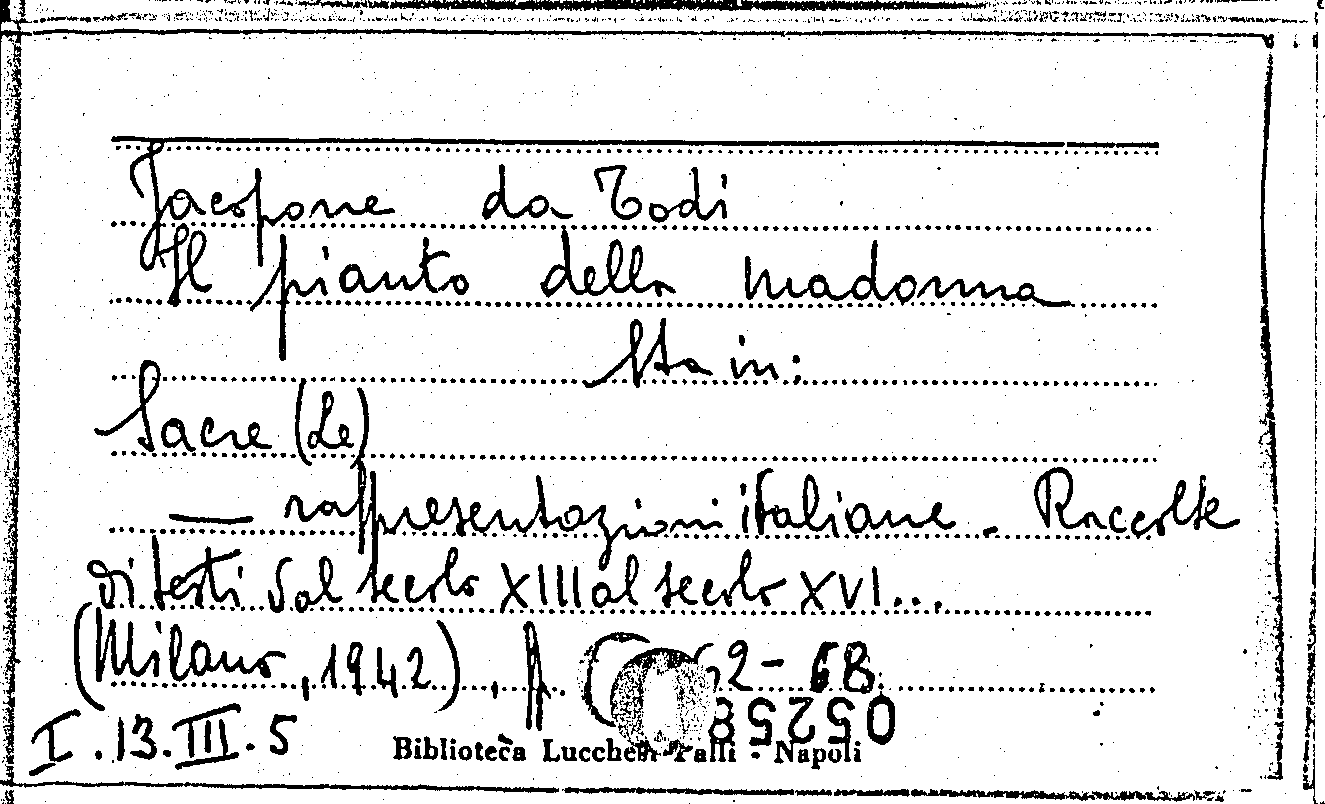 Jacopone da Todi
Il pianto della Madonna
Sta in:
Sacre (Le)
— rappresentazioni italiane. Raccolte
di testi dal secolo XIII al secolo XVI...
(Milano, 1942), pp. 62-68
05258
I.13.III.5
Biblioteca Lucchesi Palli - Napoli